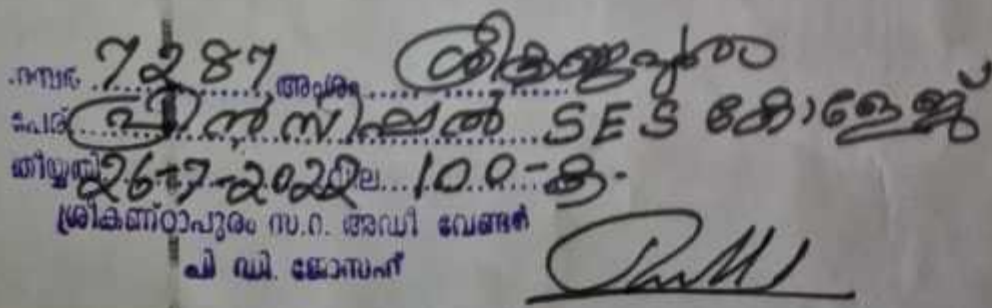 നമ്പർ 7287 അംശം ശ്രീകണ്ഠപുരം
പേര് പ്രിൻസിപ്പൽ SES കോളേജ്
തിയ്യതി 26-7-2022 വില 100-ക.
ശ്രീകണ്ഠാപുരം സ.റ. അഡി വേണ്ടർ
പി ഡി. ജോസഫ്